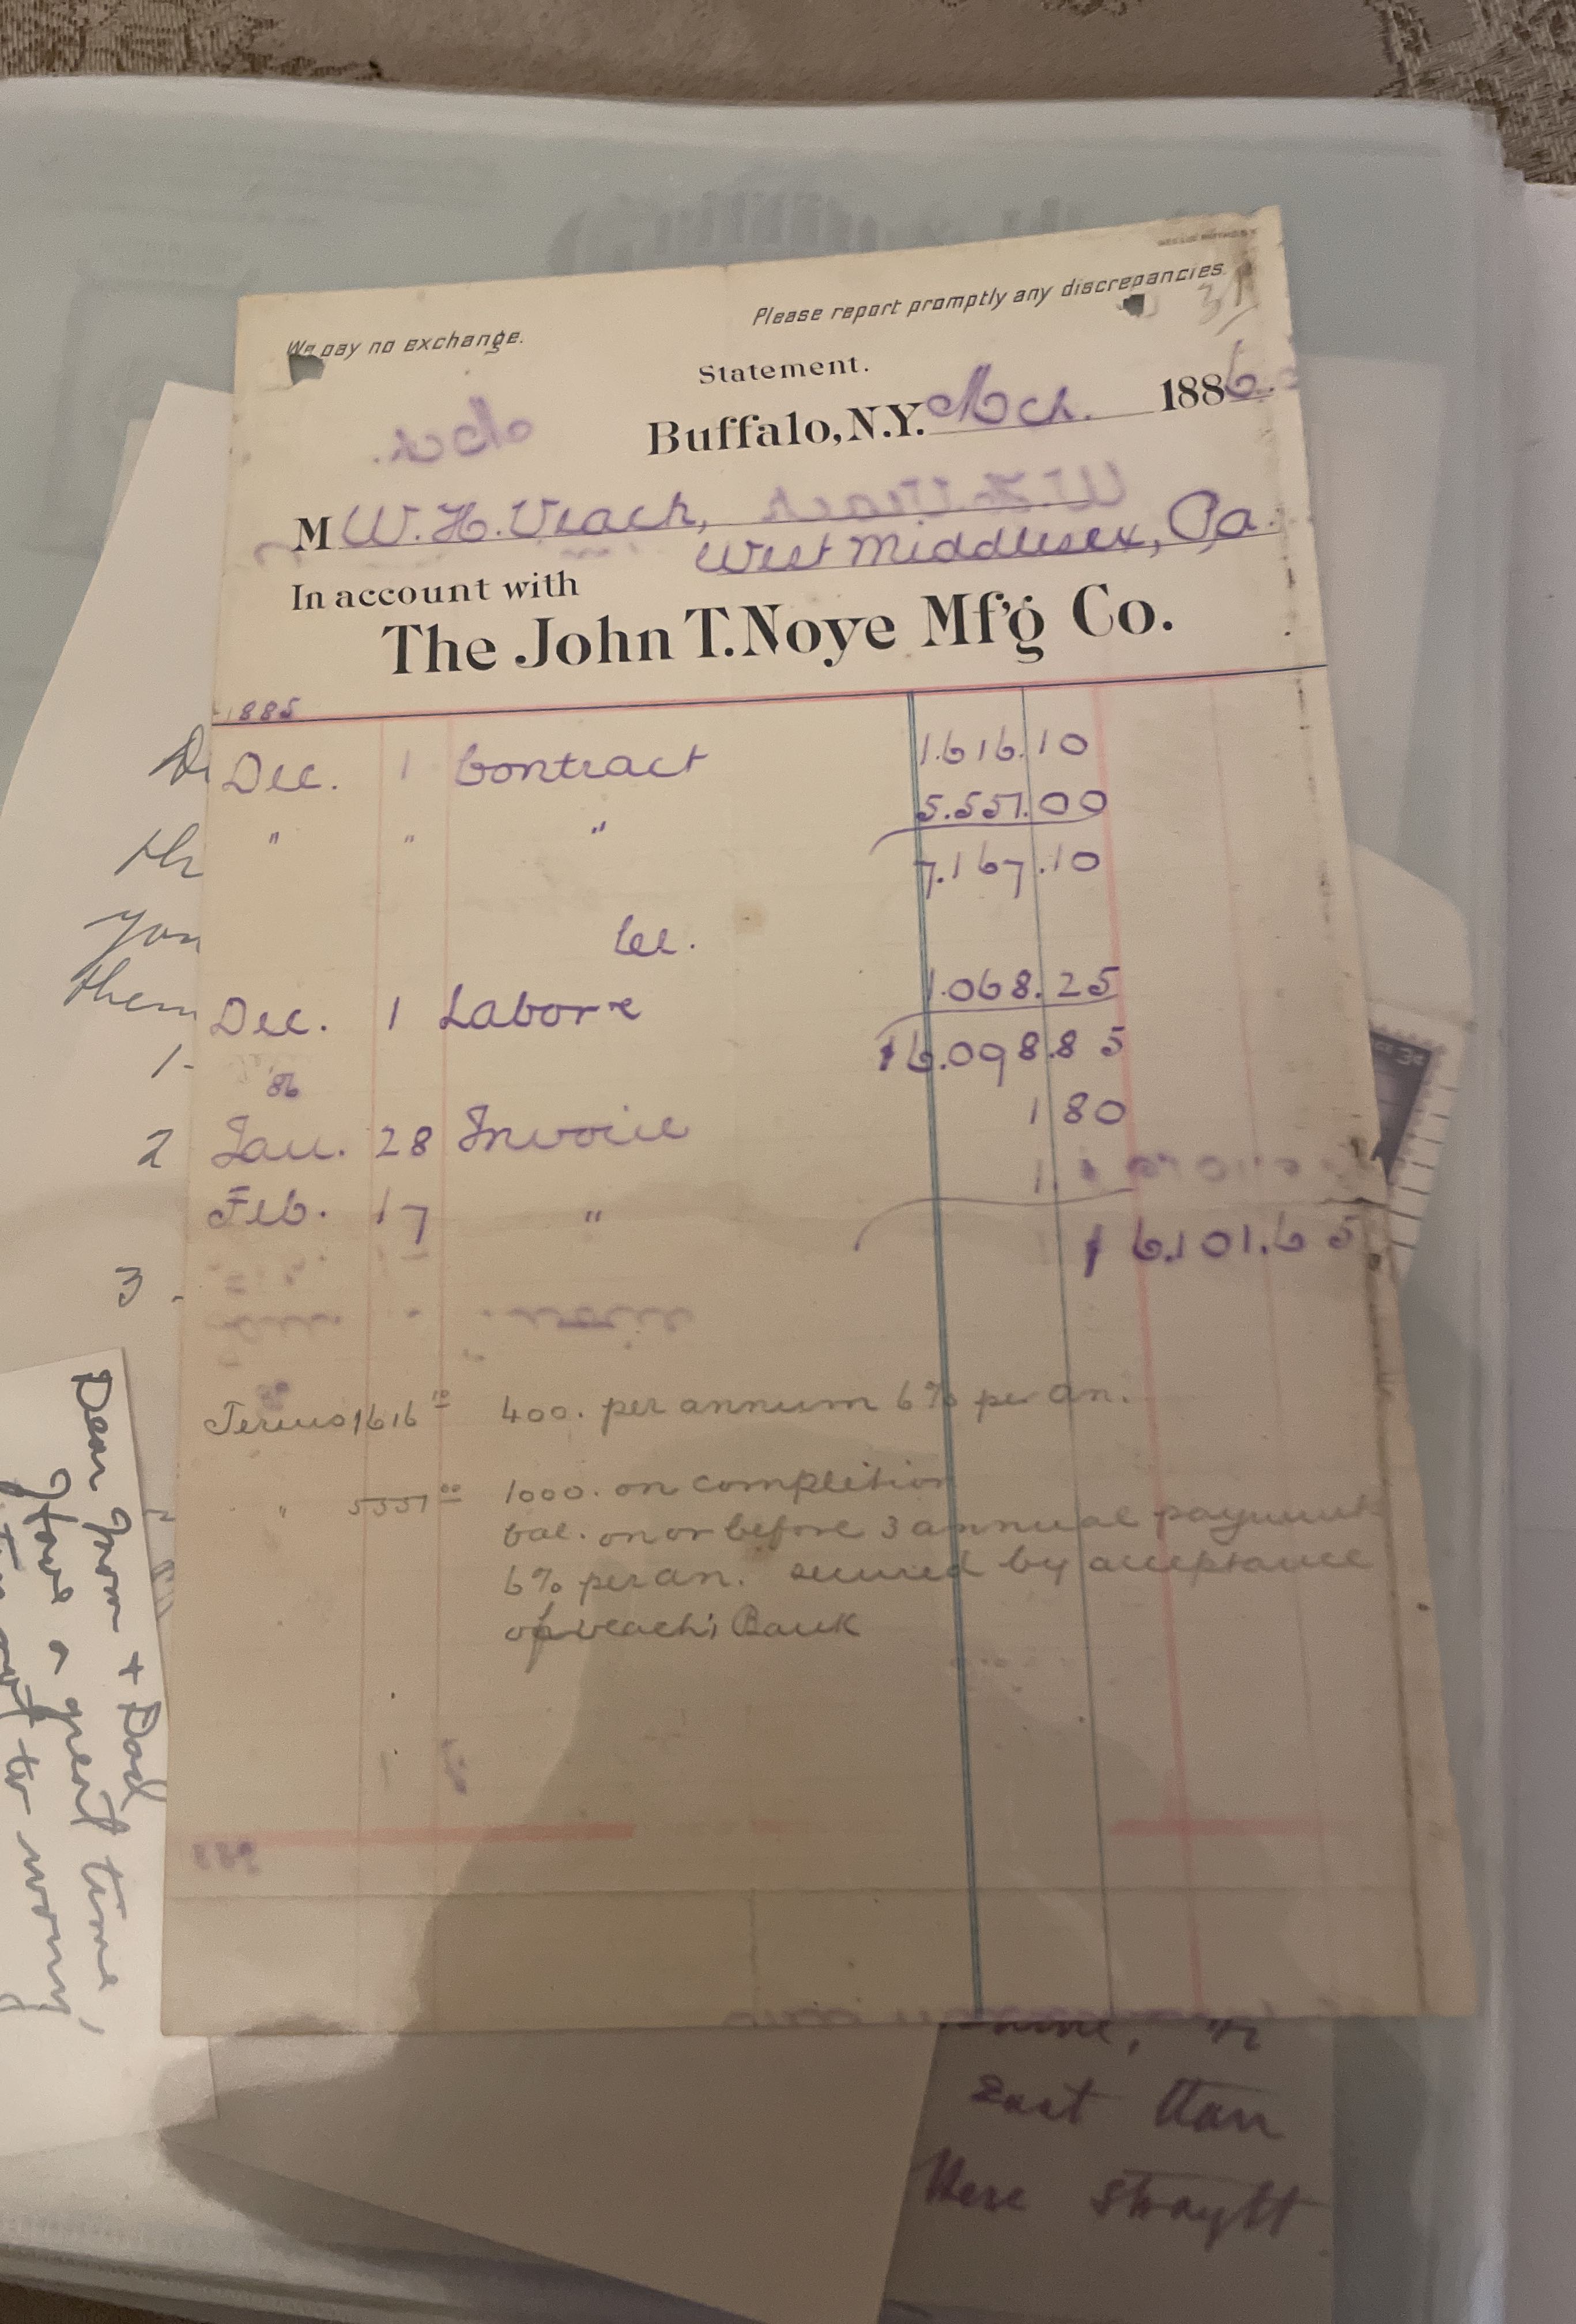 We pay no exchange.
Please report promptly any discrepancies.
Statement.
Buffalo, N.Y. Mch. 1886
M W. H. Veach,
West Middlesex, Pa.
In account with
The John T. Noye Mf'g Co.
1885
Dec. 1 Contract 1.616.10
" " " 5.551.00
7.167.10
Cr.
Dec. 1 Labor 1.068.25
$6.098.85
86
Jan. 28 Invoice 1 80
Feb. 17 " 1.
$6.101.65
Terms 1616 10 400. per annum 6% per an.
" 5551 00 1000. on completion
bal. on or before 3 annual payments
6% per an. secured by acceptance
of Veach's Bank
th
you
them
1-
2
3 -
Dear Mom + Dad
Have a great time,
to worry
East
Here